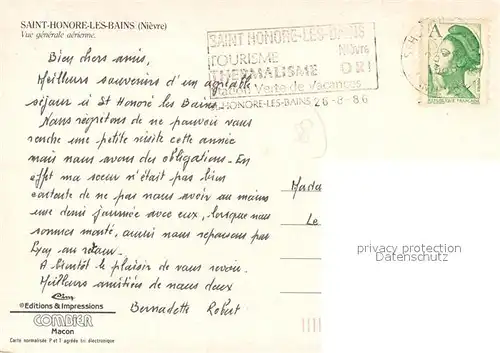 SAINT-HONORE-LES-BAINS (Nièvre)
Vue générale aérienne.
SAINT HONORE-LES-BAINS
Nièvre
TOURISME
THERMALISME ORL
Station Verte de Vacances
ST HONORE-LES-BAINS 26-8-86
A
REPUBLIQUE FRANÇAISE
Bien chers amis,
Meilleurs souvenirs d'un agréable
séjour à St Honoré les Bains.
Nous regrettons de ne pouvoir vous
rendre une petite visite cette année
mais nous avons des obligations. En
effet ma sœur n'était pas bien
contente de ne pas nous avoir au moins
une demi journée avec eux, lorsque nous
sommes monté, aussi nous repassons par
au retour.
A bientôt le plaisir de vous revoir.
Meilleures amitiées de nous deux
Bernadette Robert
Mada
Le
privacy protection
Datenschutz
®Editions & Impressions
COMBIER
Macon
Carte normalisée P et T agréée loi électronique